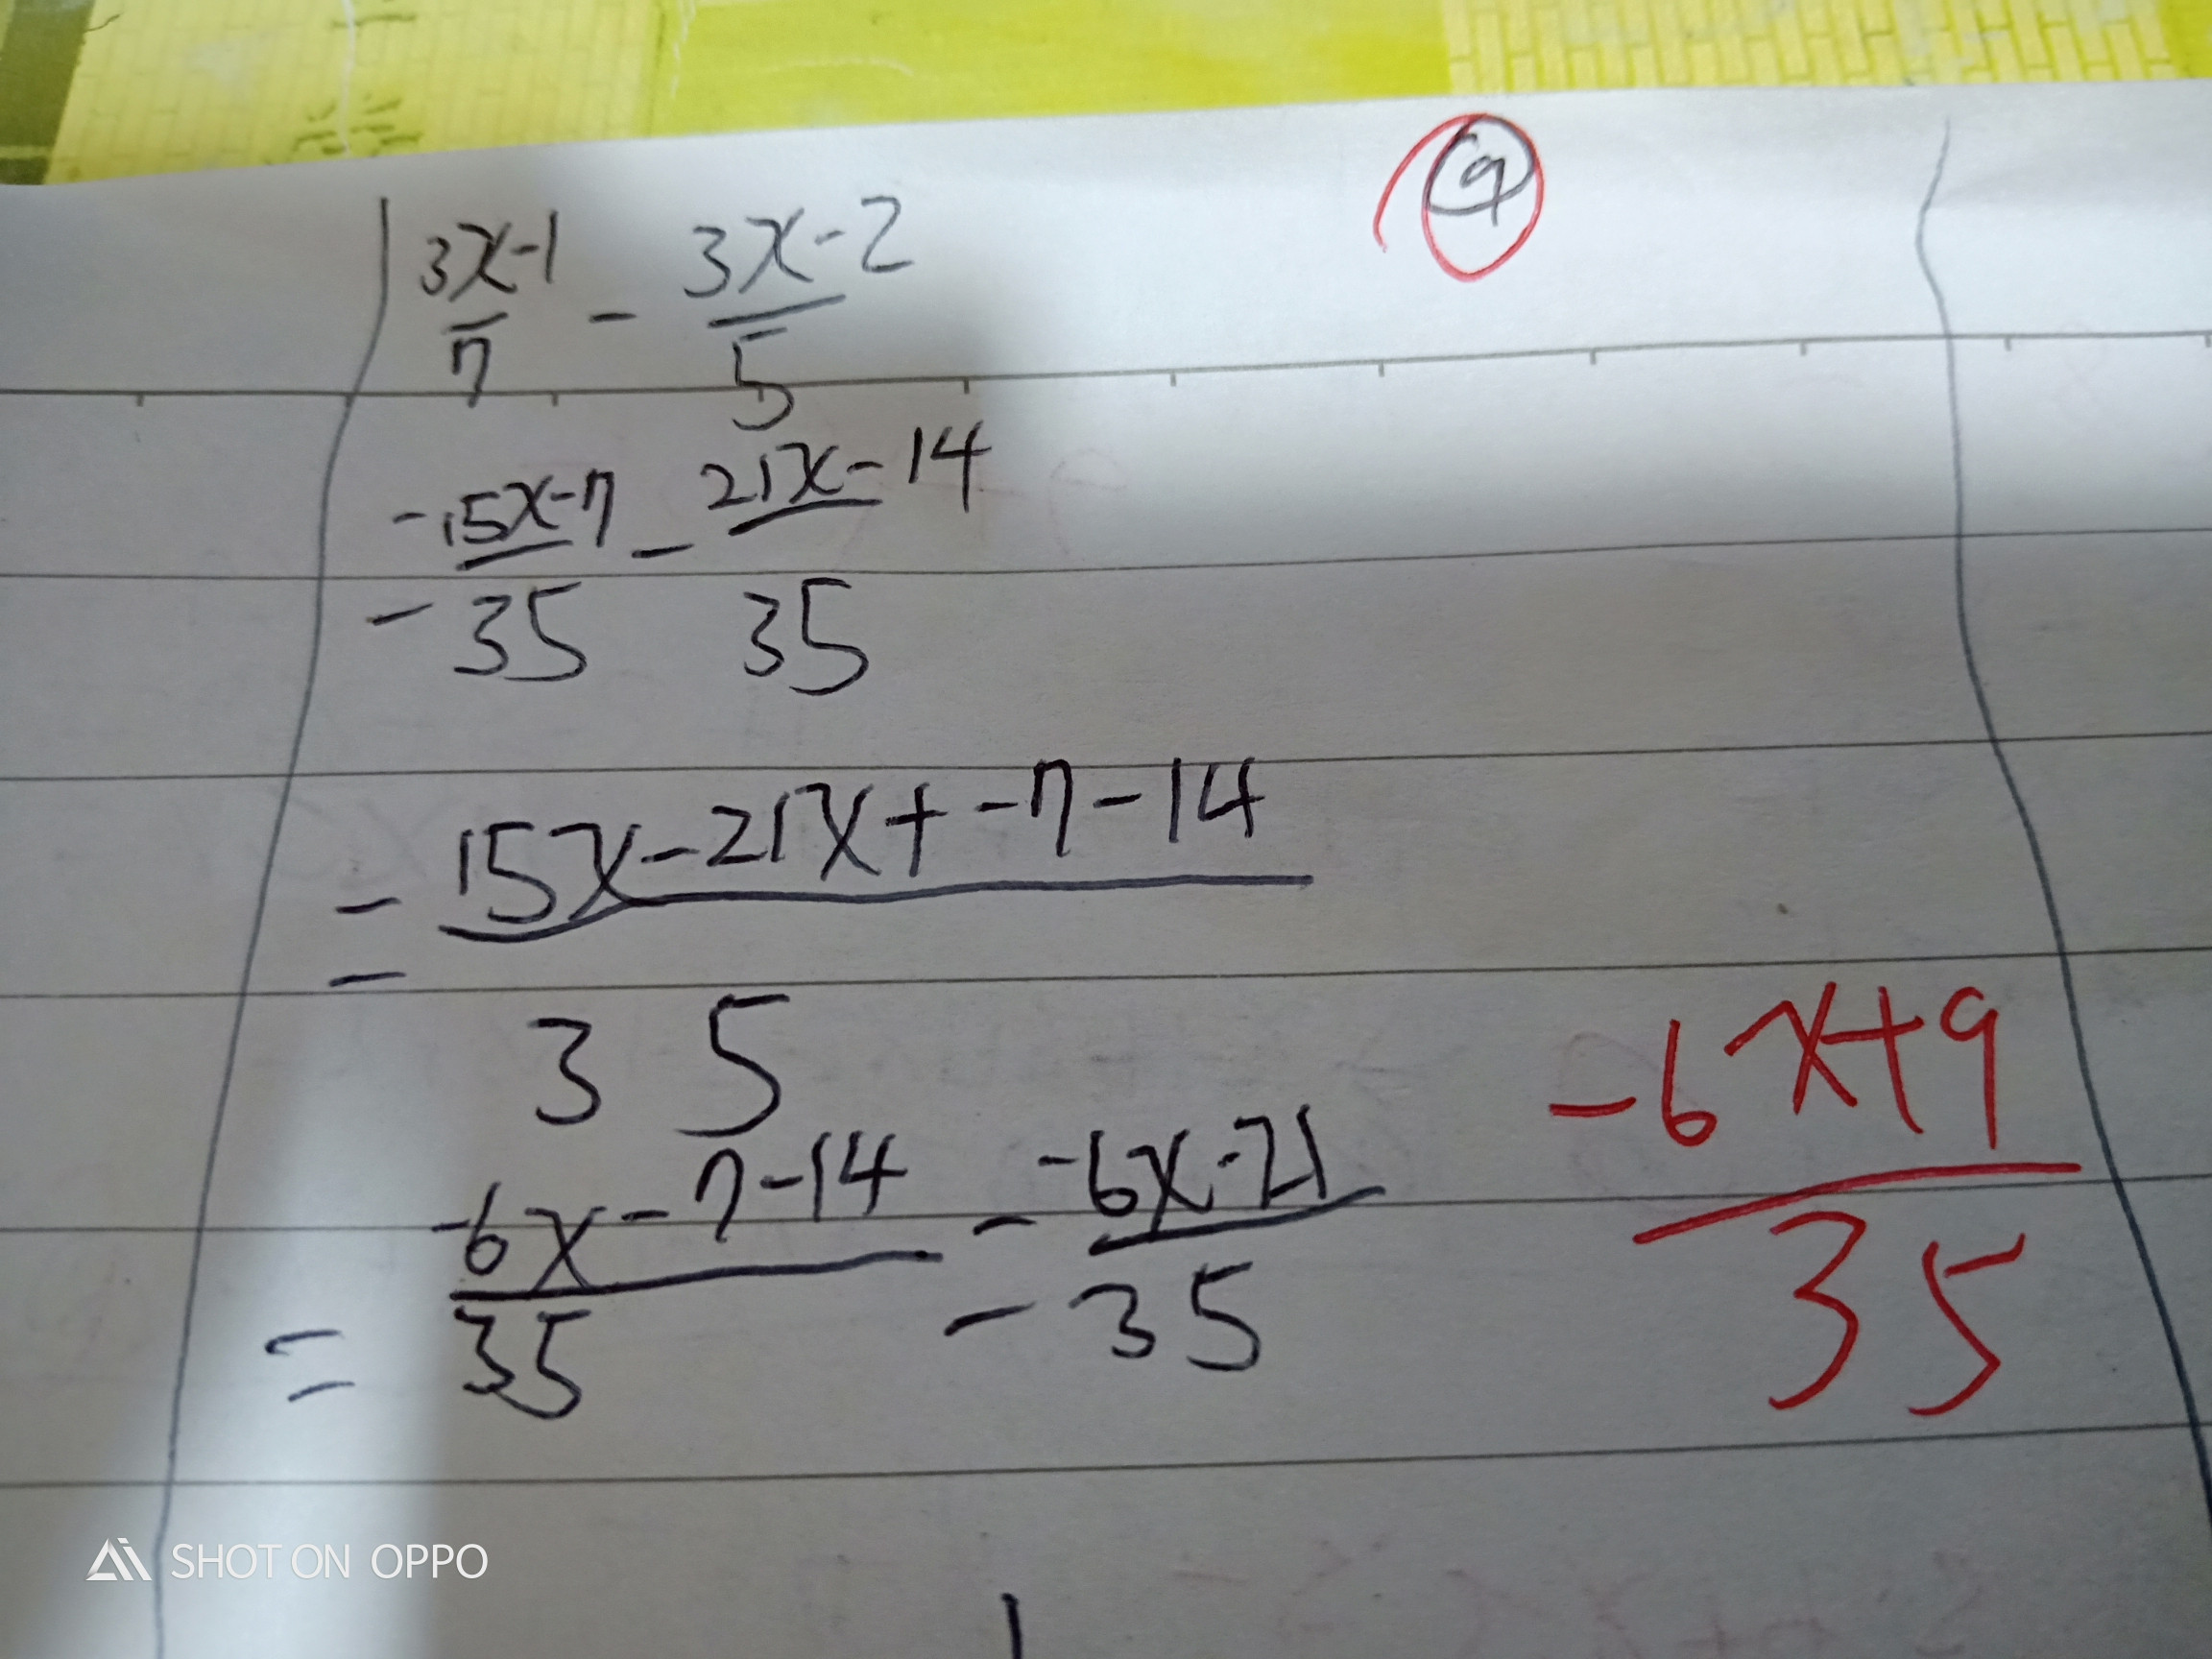 ④
3x-1/7 - 3x-2/5
= 15x-7/35 - 21x-14/35
= 15x-21x+-7-14/35
= -6x-7-14/35 = -6x-21/35
-6x+9/35
SHOT ON OPPO